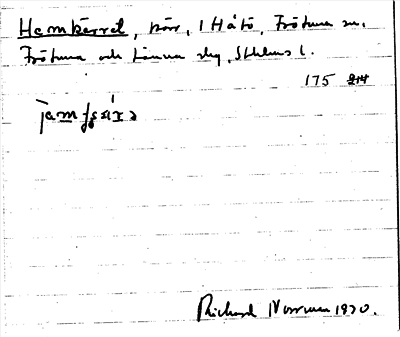 Hemkärret, kärr, i Håtö, Frötuna sn,
Frötuna och Länna slg, Sthlms l.
175
Richard Norrman 1930.